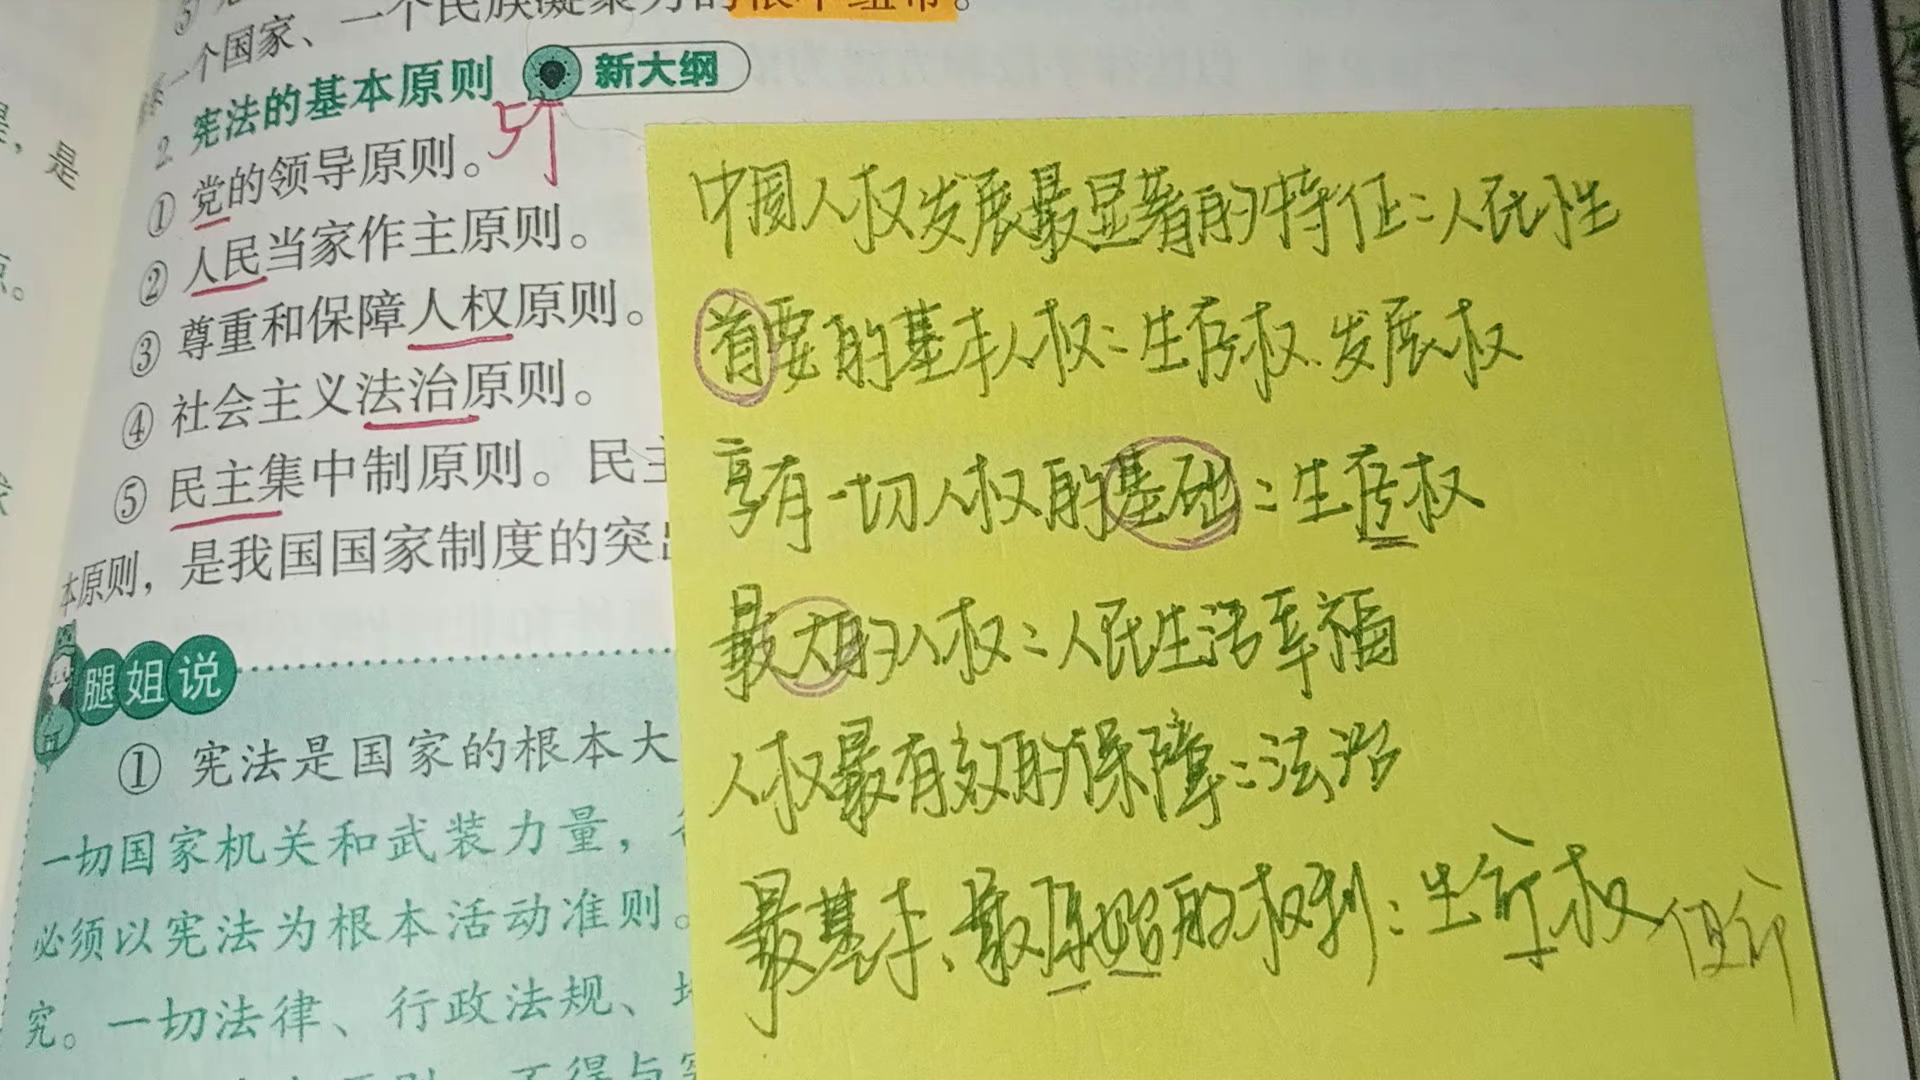 一个国家、一个民族凝聚力的根本纽带。
2. 宪法的基本原则 新大纲
5个
①党的领导原则。
②人民当家作主原则。
③尊重和保障人权原则。
④社会主义法治原则。
⑤民主集中制原则。民主
本原则，是我国国家制度的突出
腿姐说
①宪法是国家的根本大
一切国家机关和武装力量，
必须以宪法为根本活动准则。
究。一切法律、行政法规、地
不得与宪
中国人权发展最显著的特征：人民性
首要的基本人权：生存权、发展权
享有一切人权的基础：生存权
最大的人权：人民生活幸福
人权最有效的保障：法治
最基本、最原始的权利：生命权
是，是